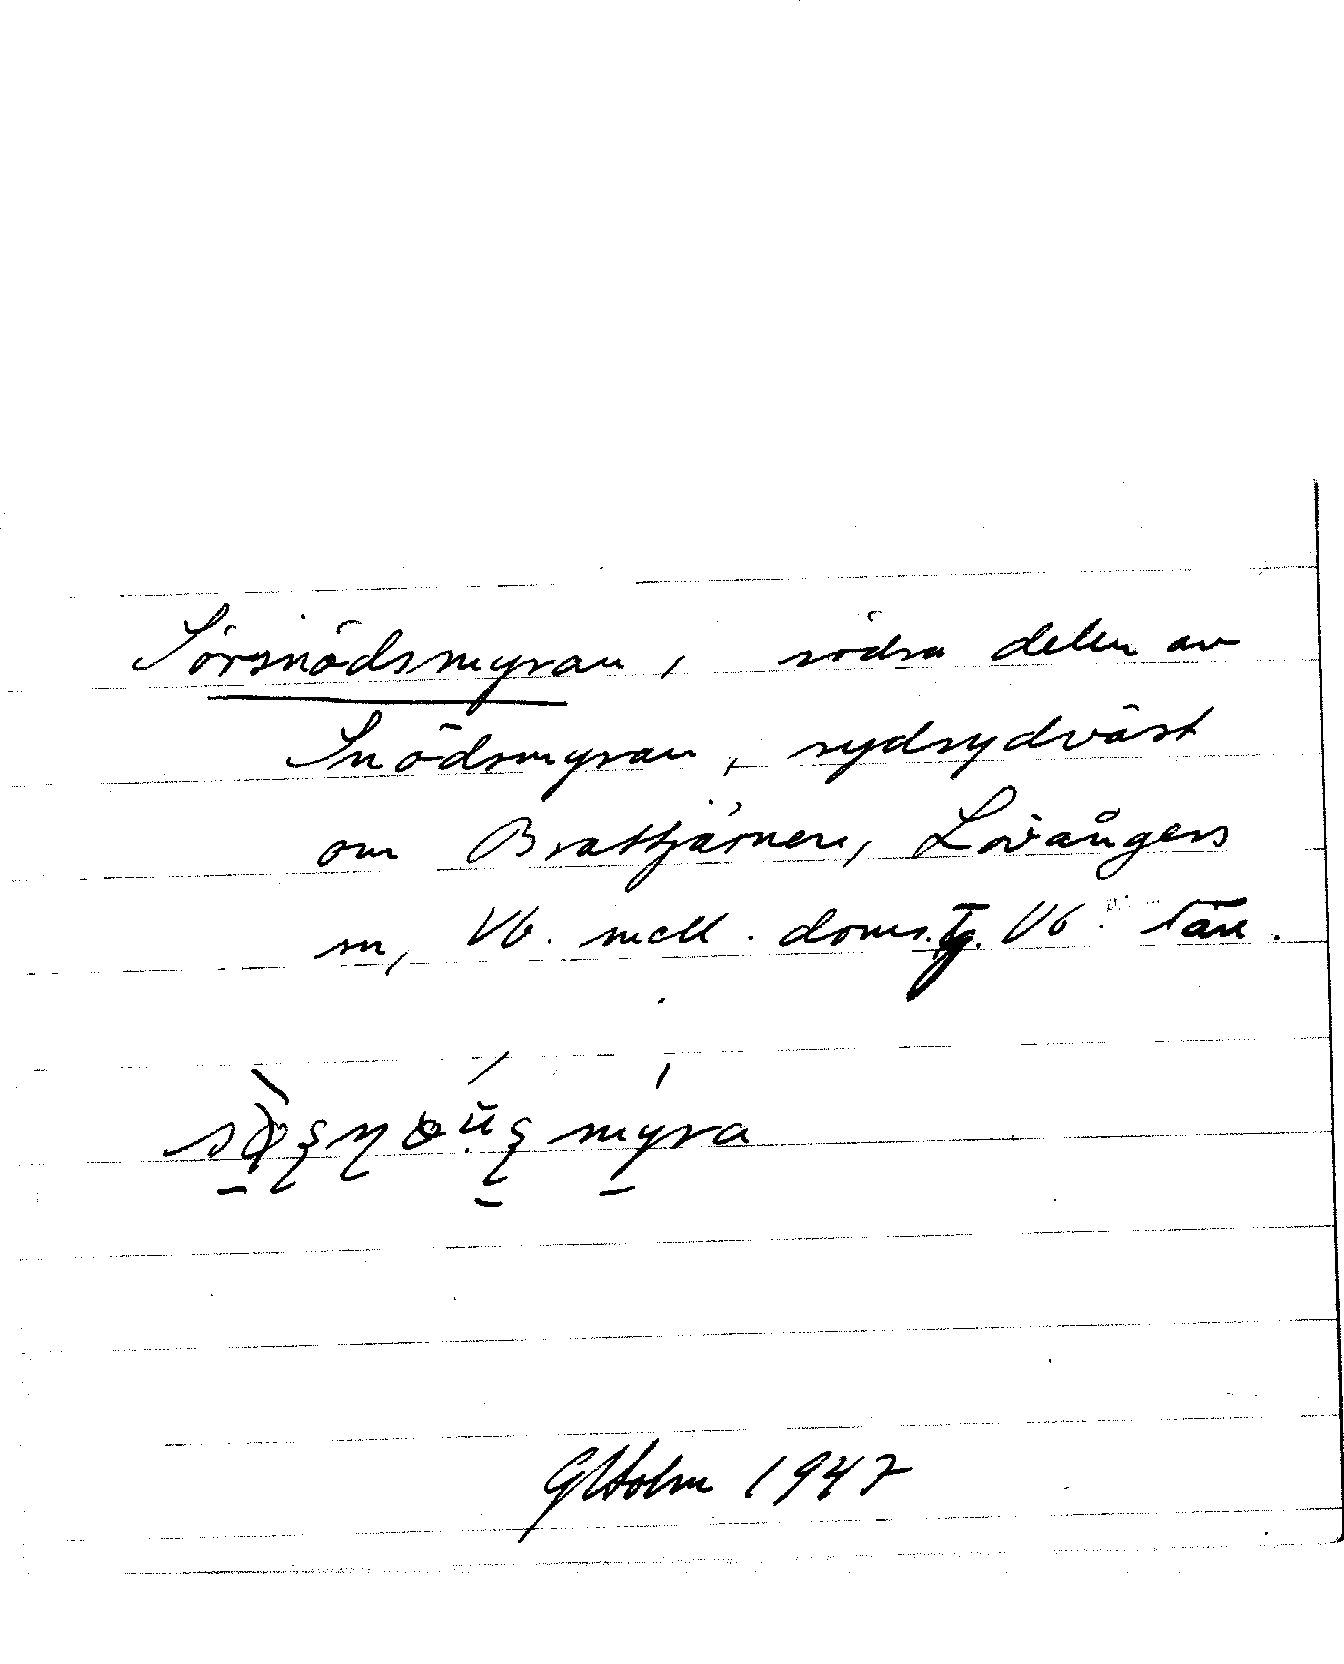 Sörsnödsmyran, södra delen av
Snödsmyran, sydsydväst
om Brattjärnen, Lövångers
sn, Vb. mell. doms. Vb län.
myra
GHolm 1947